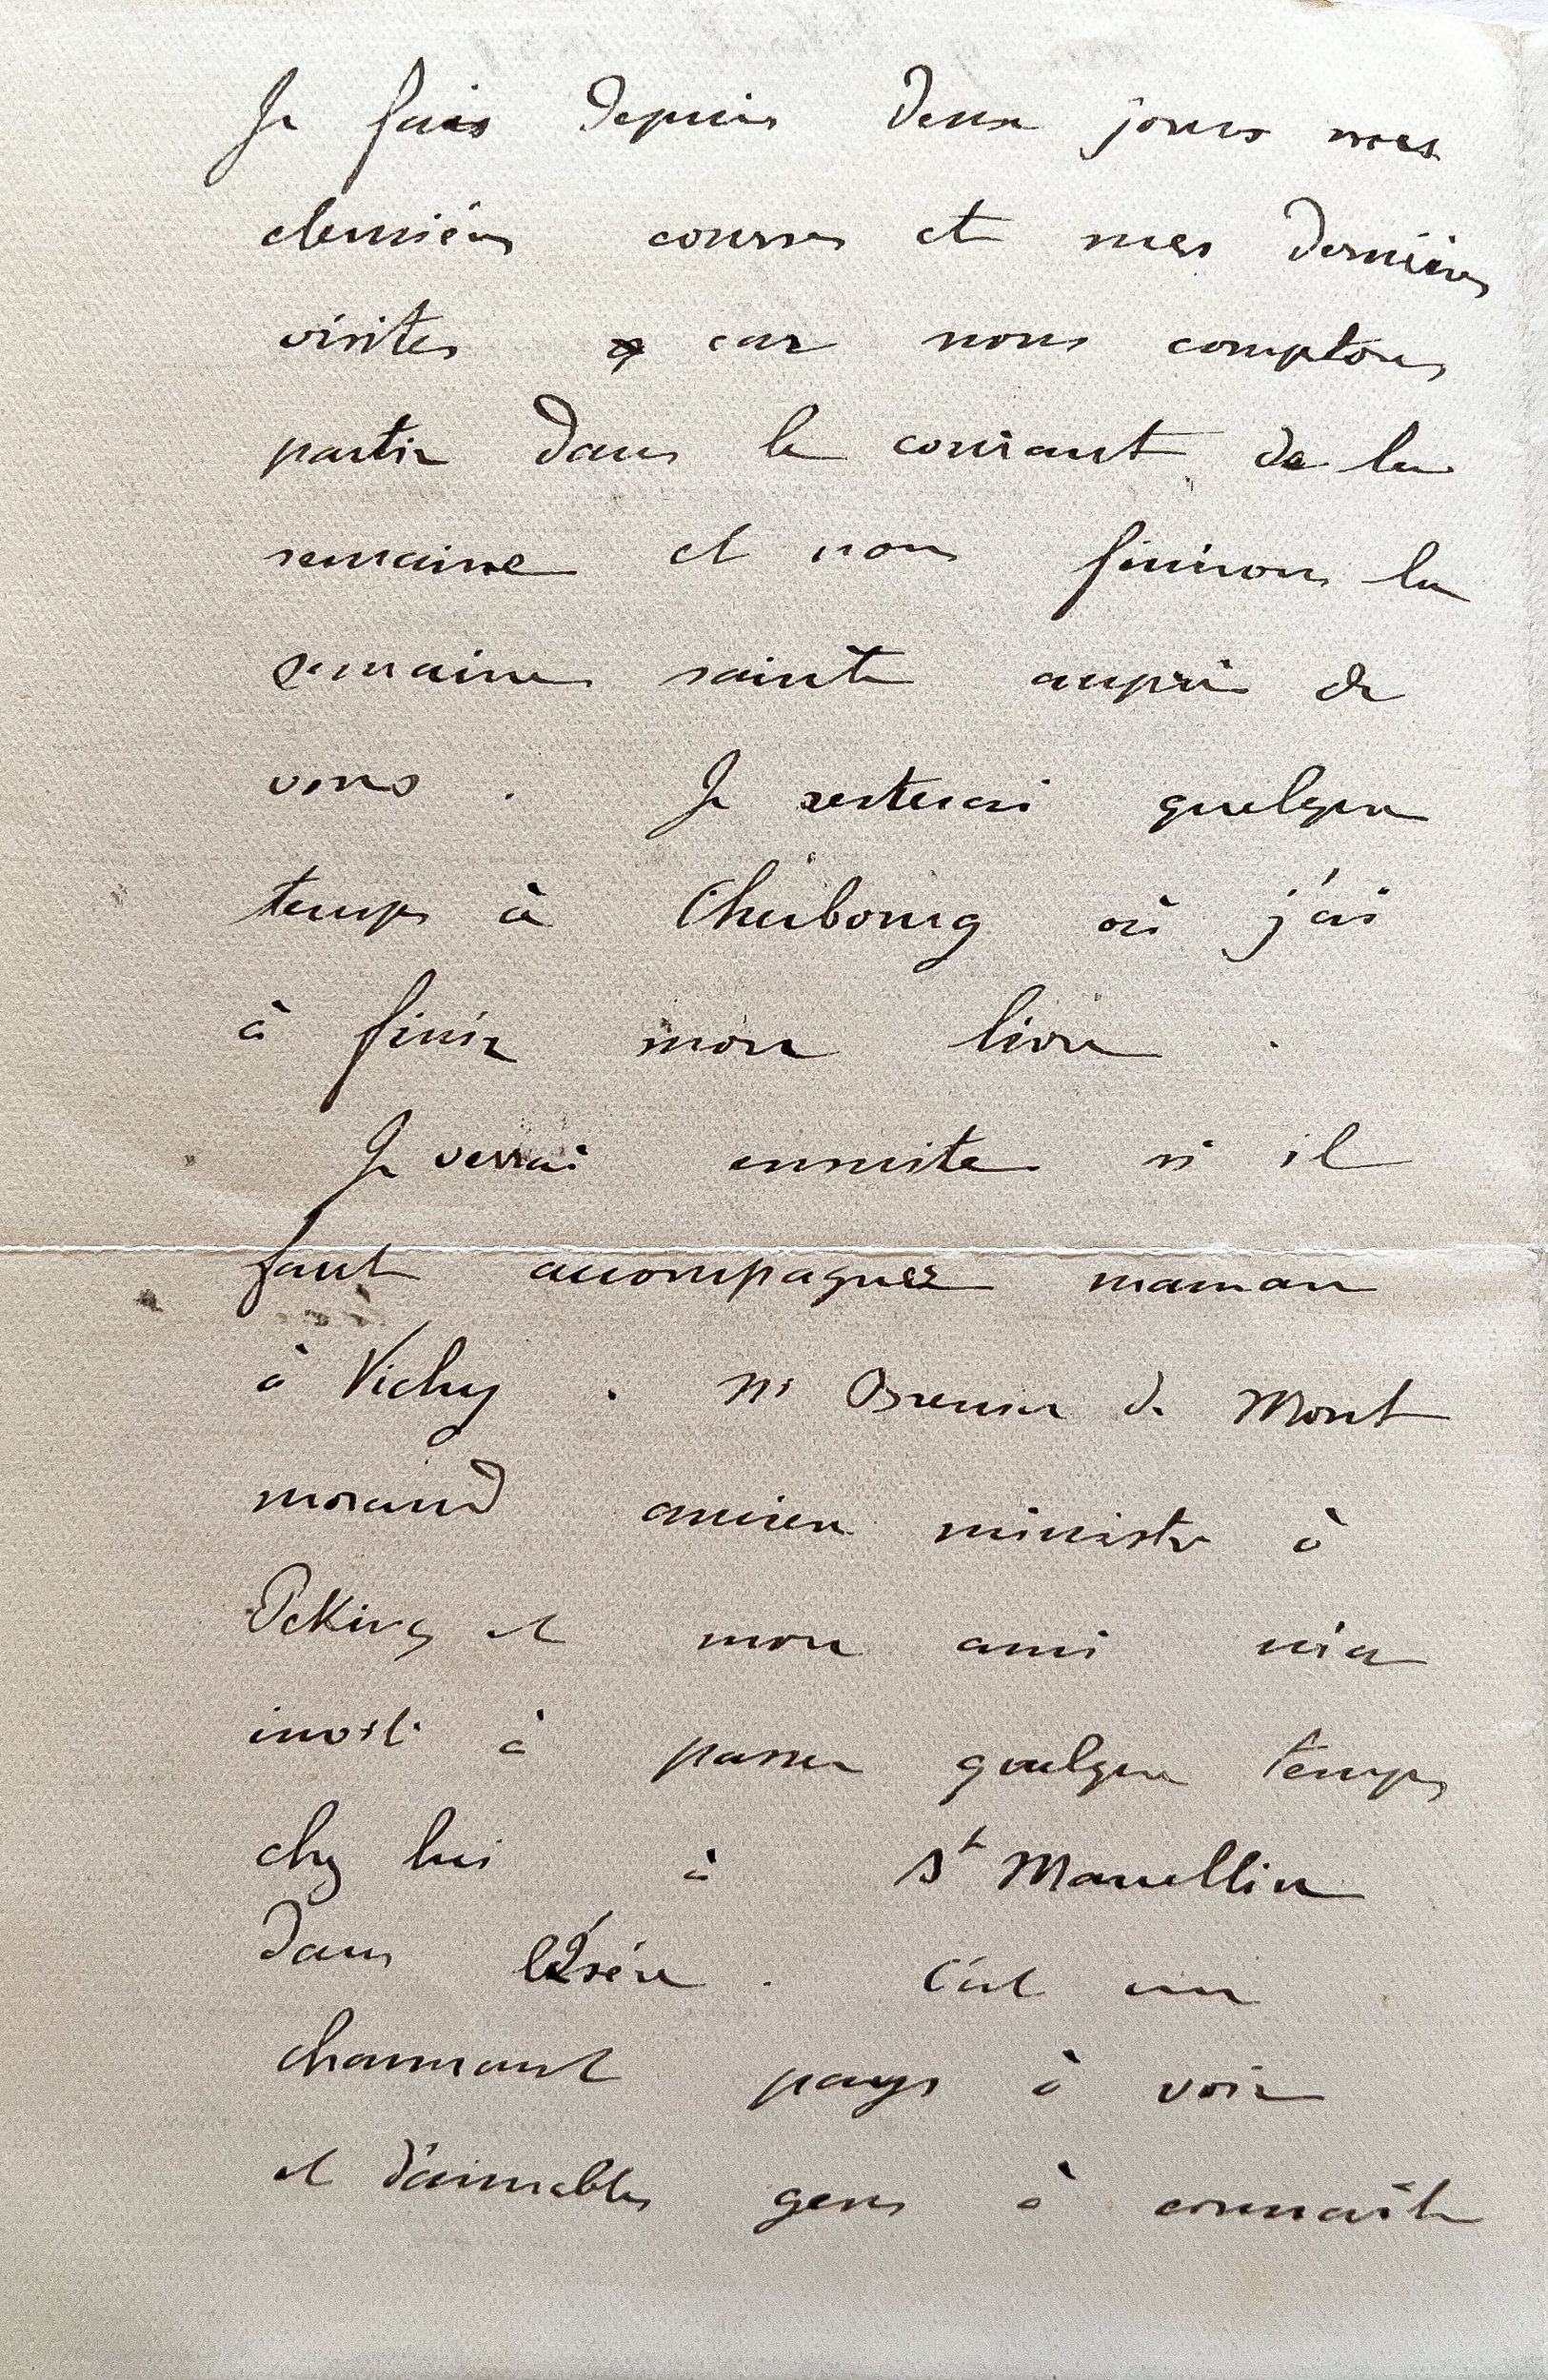 Je fais depuis deux jours mes
dernières courses et mes dernières
visites car nous comptons
partir dans le courant de la
semaine et nous finirons la
semaine sainte auprès de
vous . Je resterai quelque
temps à Cherbourg où j'ai
à finir mon livre .
Je verrai ensuite si il
faut accompagner maman
à Vichy . Mr Brenier de Mont
morand ancien ministre à
Péking et mon ami m'a
invité à passer quelque temps
chez lui à St Marcellin
dans l'Isére . C'est un
charmant pays à voir
et d'aimables gens à connaître